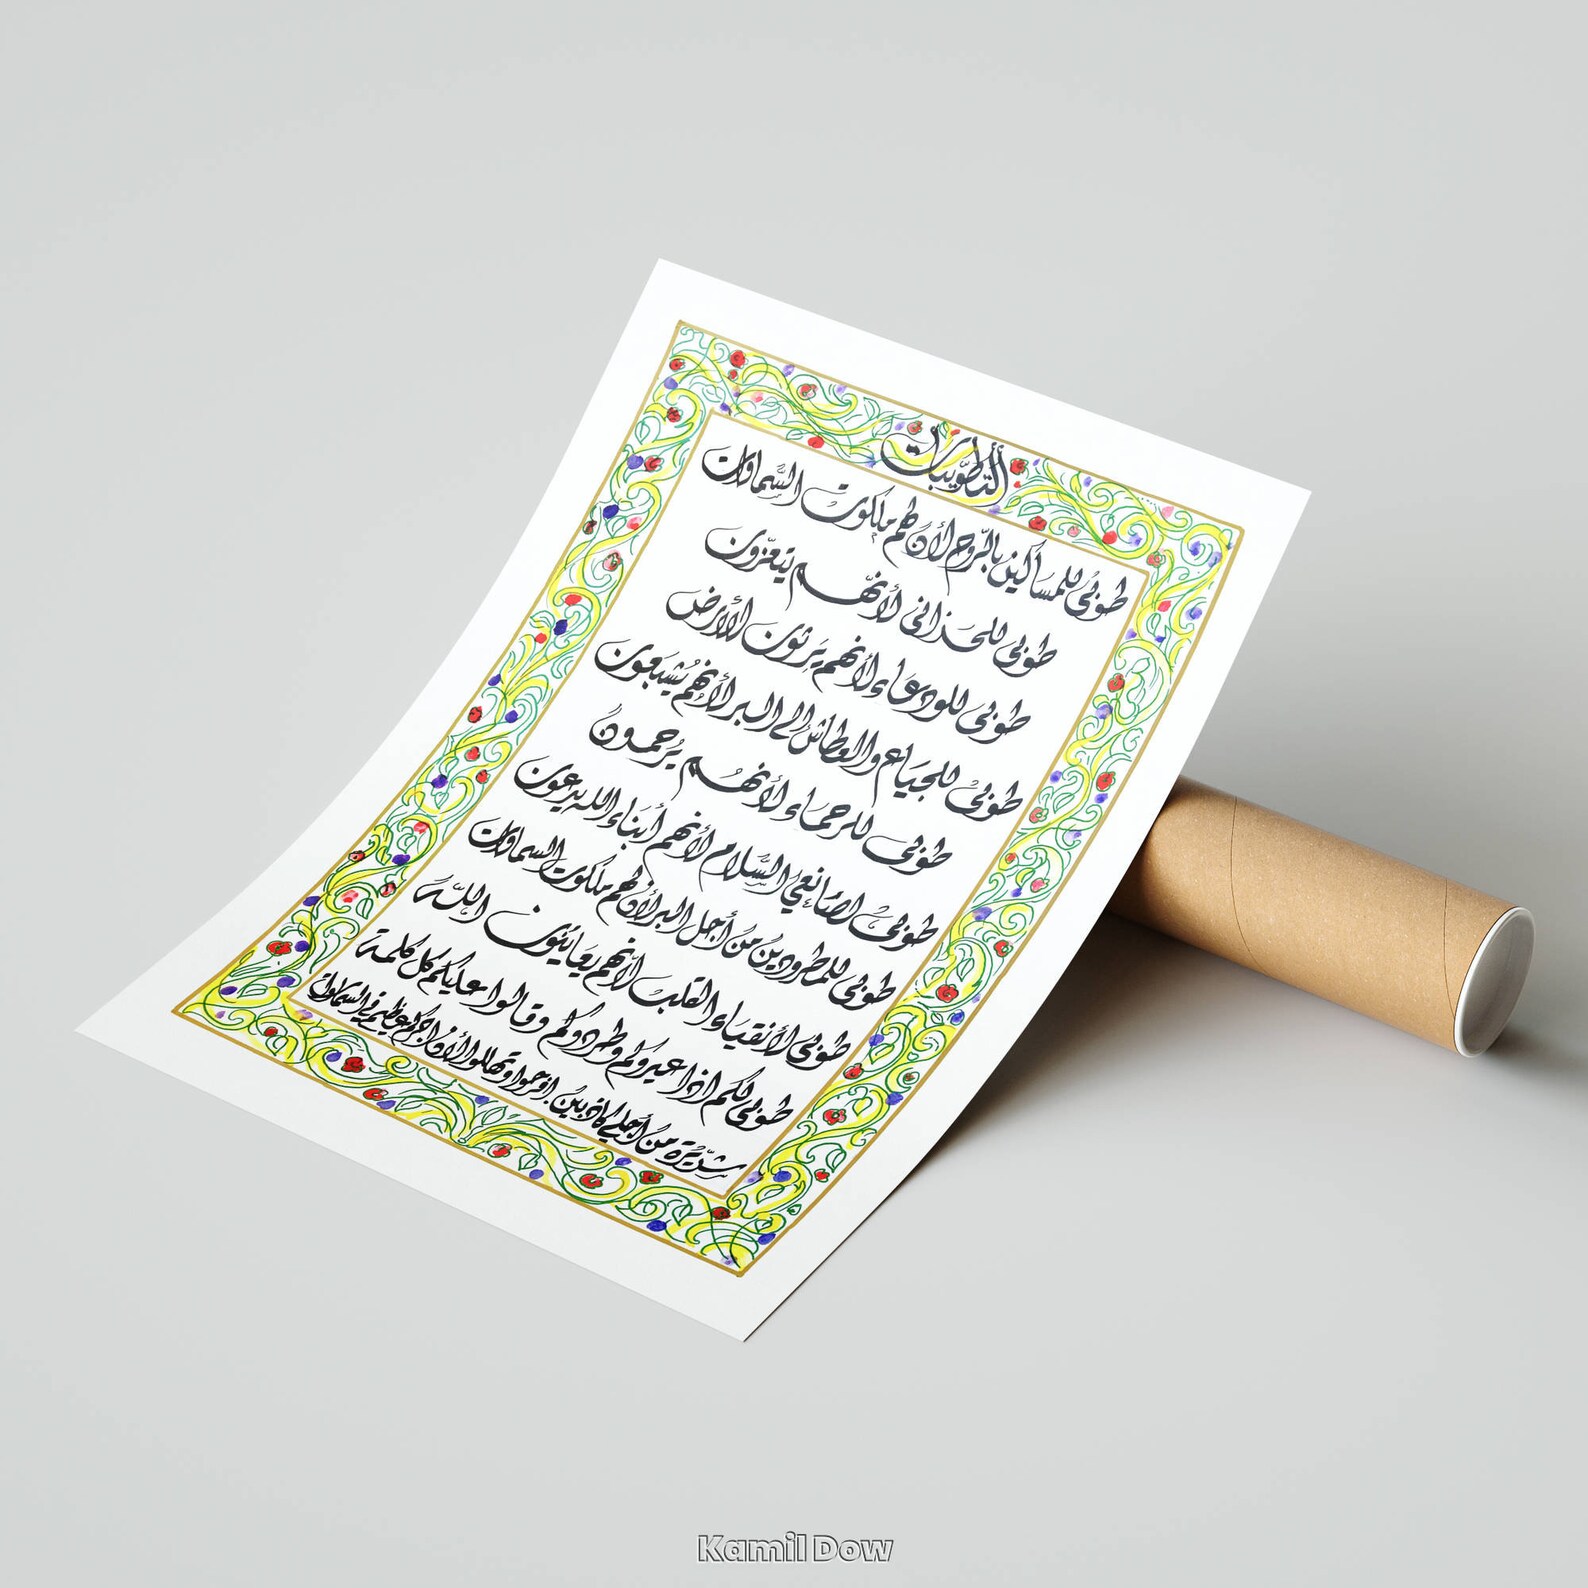 التطويبات
طوبى للمساكين بالرّوح لأن لهم ملكوت السَّماوات
طوبى للحَزانى لأنّهم يتعزّون
طوبى للودعاء لأنهم يَرثون الأرض
طوبى للجيَاع والعطاش إلى البر لأنهم يُشبَعون
طوبى للرحمَاء لأنهُم يُرحمون
طوبى لصَانعي السَّلام لأنهم أبنَاء الله يدعون
طوبى للمطرودين من أجل البر لأن لهم ملكوت السماوات
طوبى لأنقيَاء القلب لأنهم يعَاينُون اللّه
طوبى لكم اذا عيروكم وطردوكم وقالوا عليكم كل كلمة
شرّيرة من أجلي كاذبين. افرحوا وتهللوا لأن اجركم عظيم في السماوات
Kamil Dow